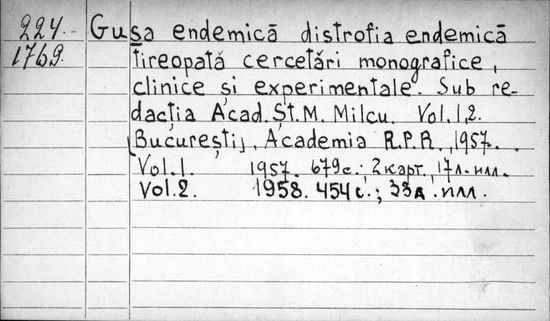 224.
1769.
Gușa endemică distrofia endemică
tireopată cercetări monografice,
clinice și experimentale. Sub re-
dacția Acad. Șt. M. Milcu. Vol. 1,2.
[București], Academia R.P.R., 1957.
Vol. 1. 1957. 679 с.; 2 карт., 17 л. илл.
Vol. 2. 1958. 454 с.; 33 л. илл.